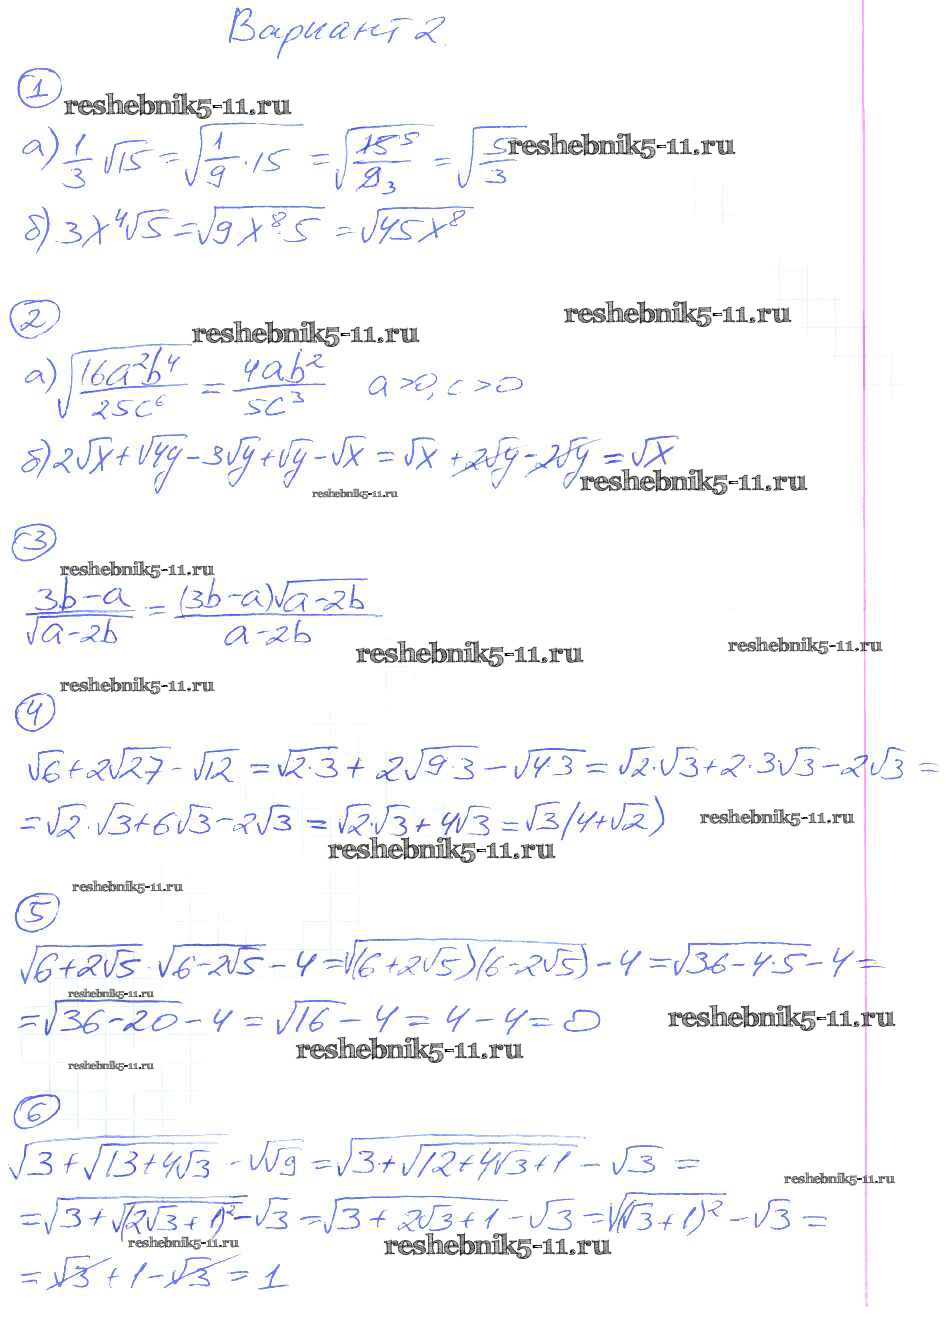 Вариант 2.
1
reshebnik5-11.ru
а) 1/3 √15 = √(1/9 · 15) = √(15 5/9 3) = √(5/3) reshebnik5-11.ru
б) 3x⁴√5 = √(9x⁸·5) = √(45x⁸)
2
reshebnik5-11.ru reshebnik5-11.ru
а) √(16a²b⁴/25c⁶) = 4ab²/5c³ a>0, c>0
б) 2√x + √4y - 3√y + √y - √x = √x + 2√y - 2√y = √x
reshebnik5-11.ru reshebnik5-11.ru
3
reshebnik5-11.ru
(3b-a)/√(a-2b) = (3b-a)√(a-2b)/(a-2b)
reshebnik5-11.ru reshebnik5-11.ru
reshebnik5-11.ru
4
√6 + 2√27 - √12 = √(2·3) + 2√(9·3) - √(4·3) = √2·√3 + 2·3√3 - 2√3 =
= √2·√3 + 6√3 - 2√3 = √2·√3 + 4√3 = √3(4+√2) reshebnik5-11.ru
reshebnik5-11.ru
reshebnik5-11.ru
5
√(6+2√5) · √(6-2√5) - 4 = √((6+2√5)(6-2√5)) - 4 = √(36-4·5) - 4 =
reshebnik5-11.ru
= √(36-20) - 4 = √16 - 4 = 4 - 4 = 0 reshebnik5-11.ru
reshebnik5-11.ru
reshebnik5-11.ru
6
√(3+√(13+4√3)) - √√9 = √(3+√(12+4√3+1)) - √3 =
reshebnik5-11.ru
= √(3+√((2√3+1)²)) - √3 = √(3+2√3+1) - √3 = √((√3+1)²) - √3 =
reshebnik5-11.ru reshebnik5-11.ru
= √3 + 1 - √3 = 1